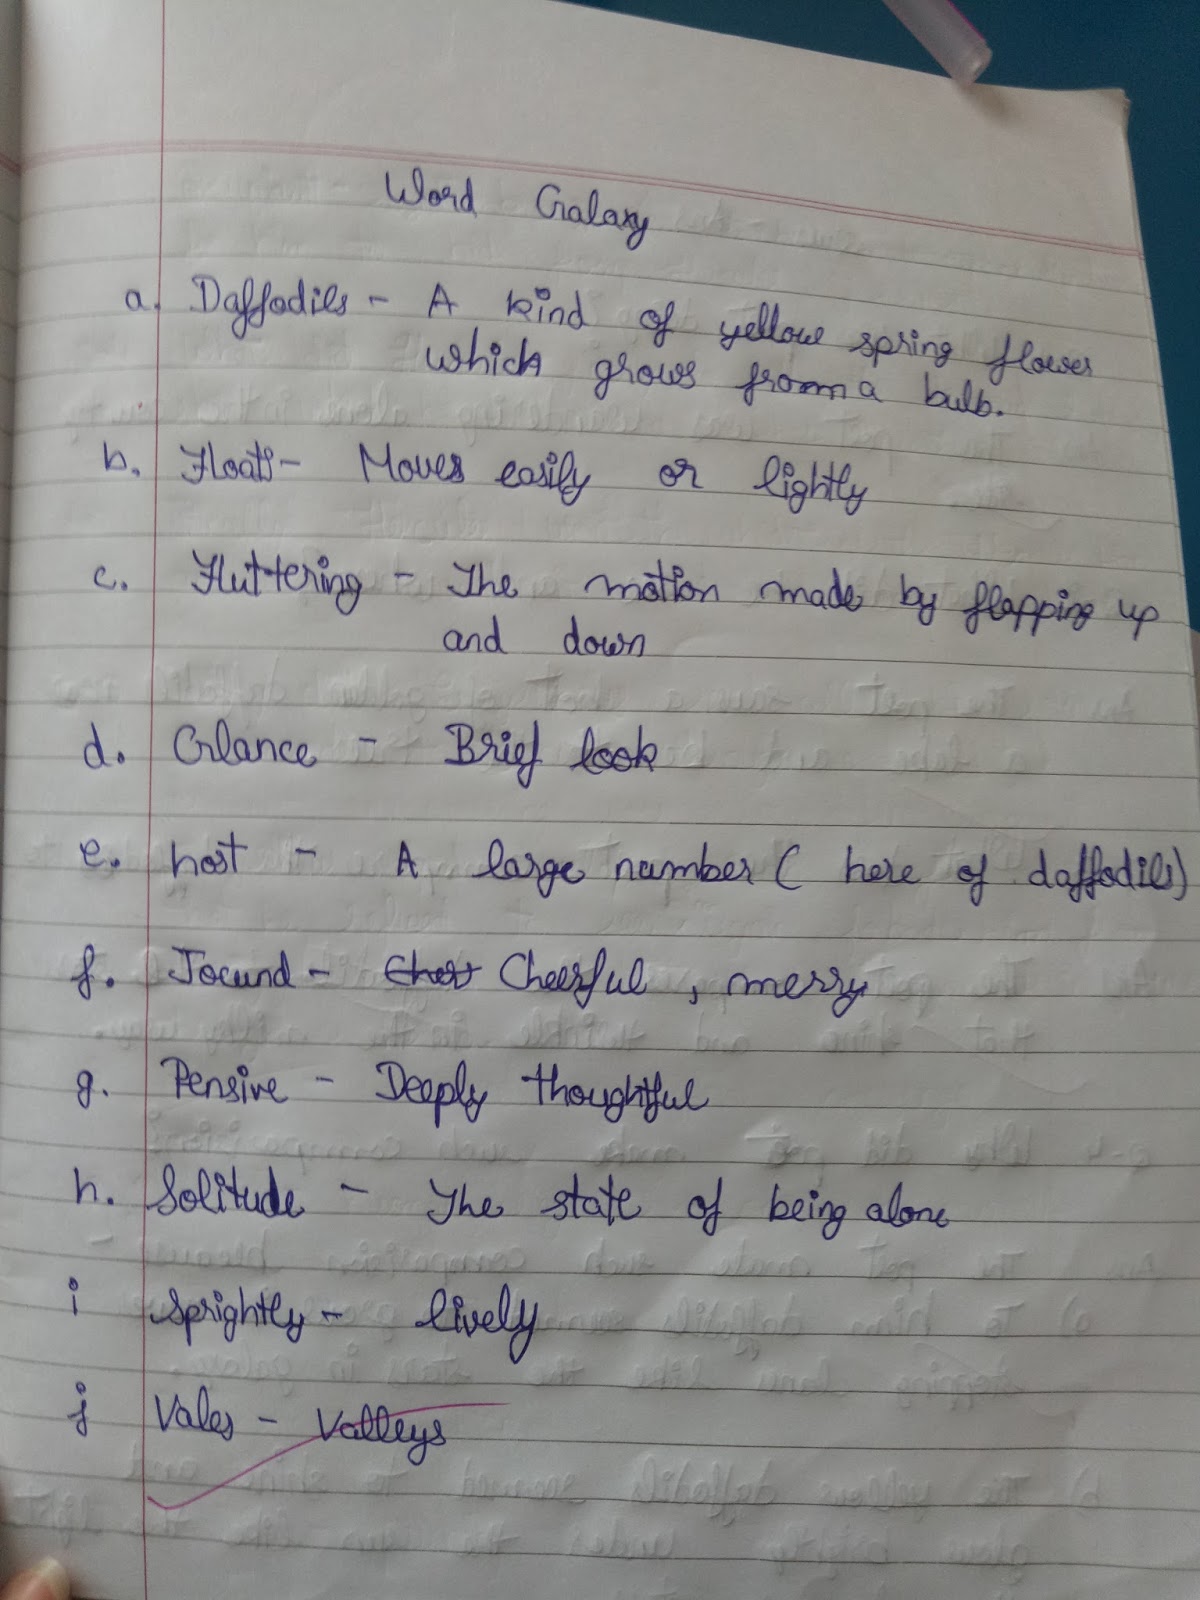 Word Galaxy
a. Daffodils - A kind of yellow spring flower
which grows from a bulb.
b. Floats - Moves easily or lightly
c. Fluttering - The motion made by flapping up
and down
d. Glance - Brief look
e. host - A large number ( here of daffodils)
f. Jocund - Cheerful , merry
g. Pensive - Deeply thoughtful
h. Solitude - The state of being alone
i Sprightly - lively
j Vales - Valleys